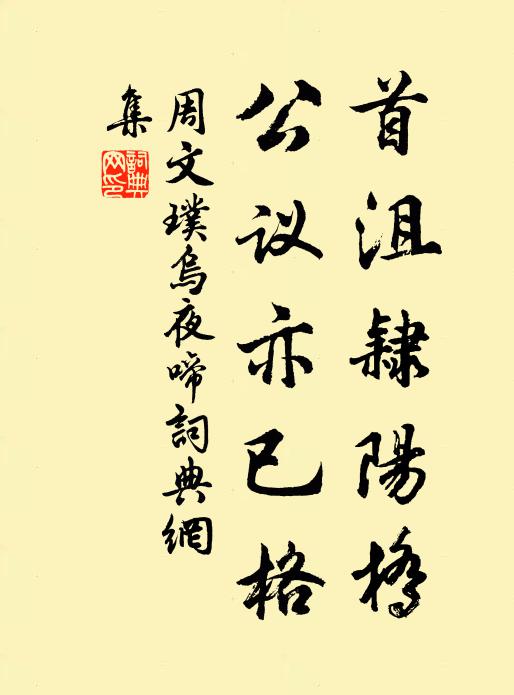 首沮隸陽橋
公议亦已格
周文璞烏夜啼詞典網
集
詞典网印